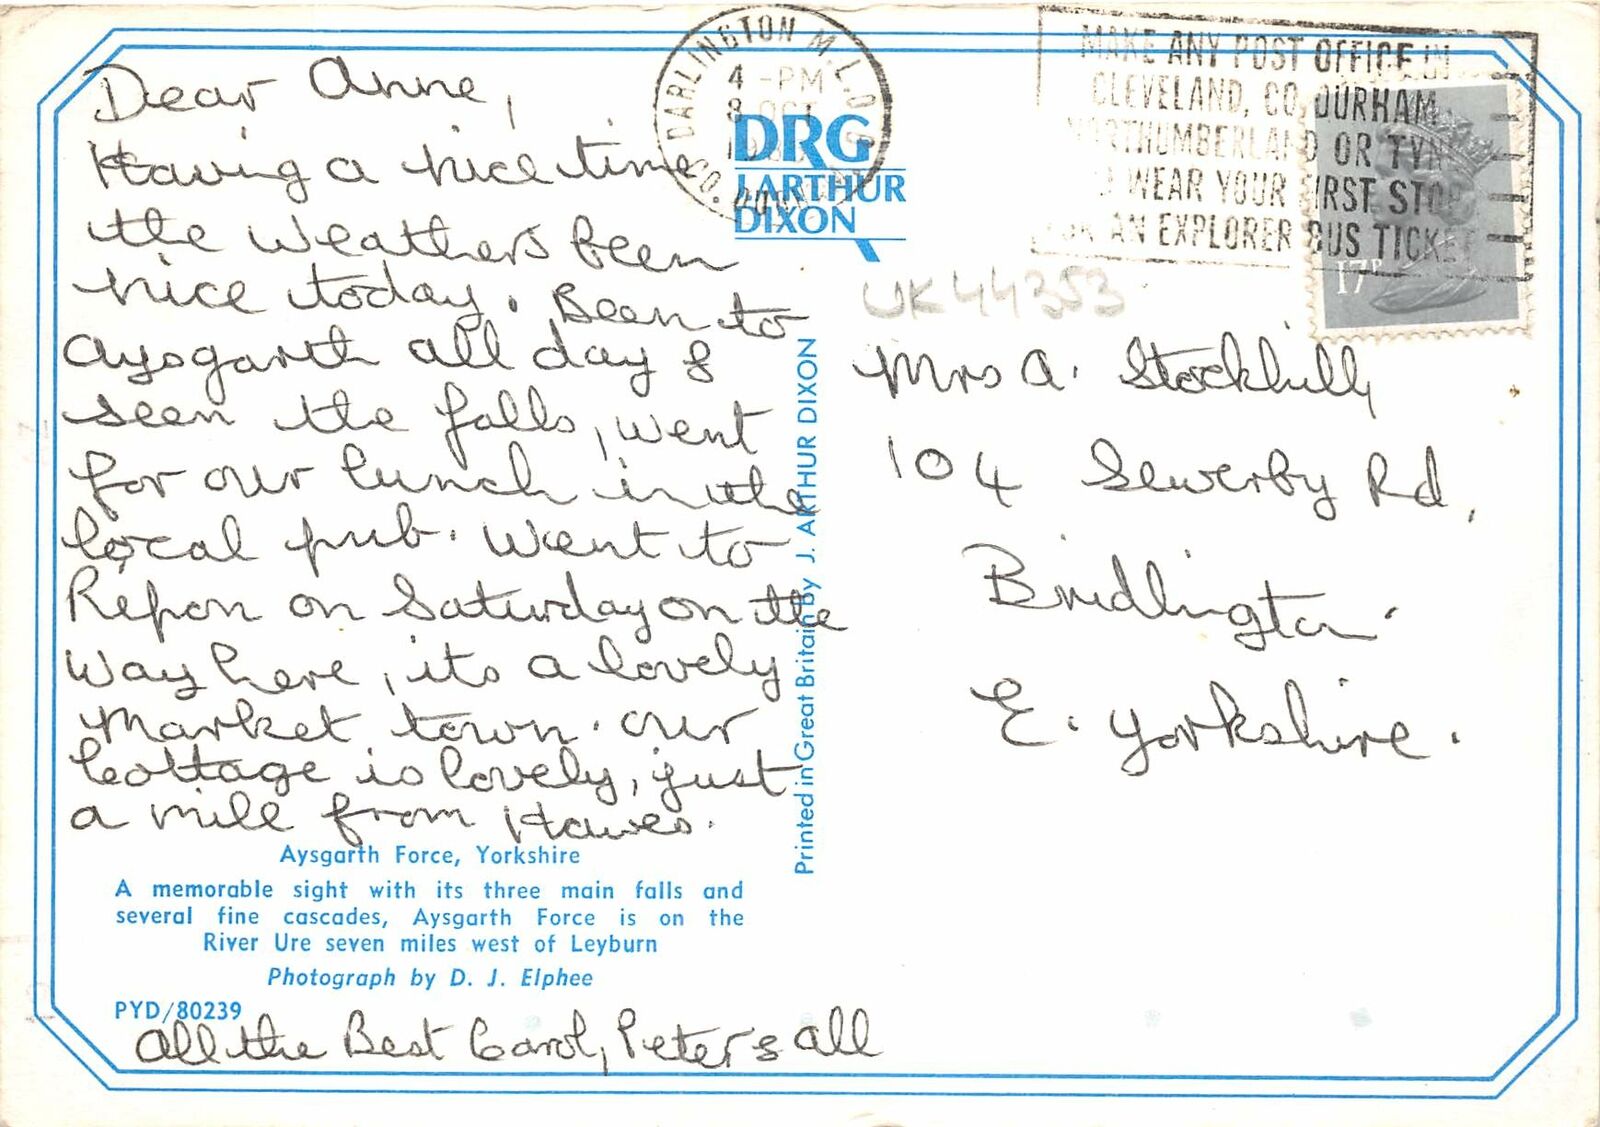 Dear Anne,
Having a nice time
the weathers been
nice today. Been to
Aysgarth all day &
seen the falls, went
for our lunch in the
local pub. Went to
Repon on Saturday on the
way here, its a lovely
market town. Our
Cottage is lovely, just
a mile from Hawes.
Aysgarth Force, Yorkshire
A memorable sight with its three main falls and
several fine cascades, Aysgarth Force is on the
River Ure seven miles west of Leyburn
Photograph by D. J. Elphee
PYD/80239
All the Best Carol, Peter & all
Printed in Great Britain by J. ARTHUR DIXON
DRG
J. ARTHUR
DIXON
DARLINGTON M.L.O.
4 -PM
8 OCT
CO. DURHAM
MAKE ANY POST OFFICE IN
CLEVELAND, CO. DURHAM,
NORTHUMBERLAND OR TYNE
& WEAR YOUR FIRST STOP
FOR AN EXPLORER BUS TICKET
17P
UK44353
Mrs A. Stockhill,
104 Sewerby Rd,
Bridlington.
E. Yorkshire.